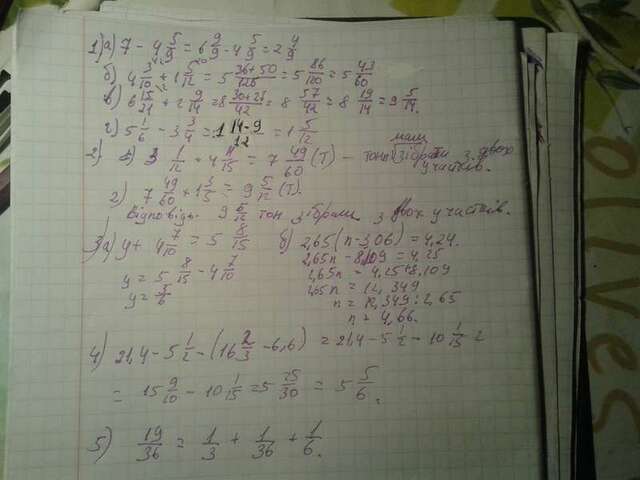 1) а) 7 - 4 5/9 = 6 9/9 - 4 5/9 = 2 4/9
б) 4 3/10 + 1 5/12 = 5 36+50/120 = 5 86/120 = 5 43/60
в) 6 15/21 + 2 9/14 = 8 30+27/42 = 8 57/42 = 8 19/14 = 9 5/14.
г) 5 1/6 - 3 3/4 = 1 14-9/12 = 1 5/12
2) 3 1/12 + 4 11/15 = 7 49/60 (т) - тонн зібрали з двох
участків.
2) 7 49/60 + 1 3/5 = 9 5/12 (т).
Відповідь: 9 5/12 тон зібрали з двох участків.
3) а) y + 4 7/10 = 5 8/15
y = 5 8/15 - 4 7/10
y = 5/6
б) 2,65(n-3,06) = 4,24.
2,65n - 8,109 = 4,25
2,65n = 4,25+8,109
2,65n = 12,349
n = 12,349:2,65
n = 4,66.
4) 21,4 - 5 1/2 - (16 2/3 - 6,6) = 21,4 - 5 1/2 - 10 1/15 =
= 15 9/10 - 10 1/15 = 5 25/30 = 5 5/6.
5) 19/36 = 1/3 + 1/36 + 1/6.
olives